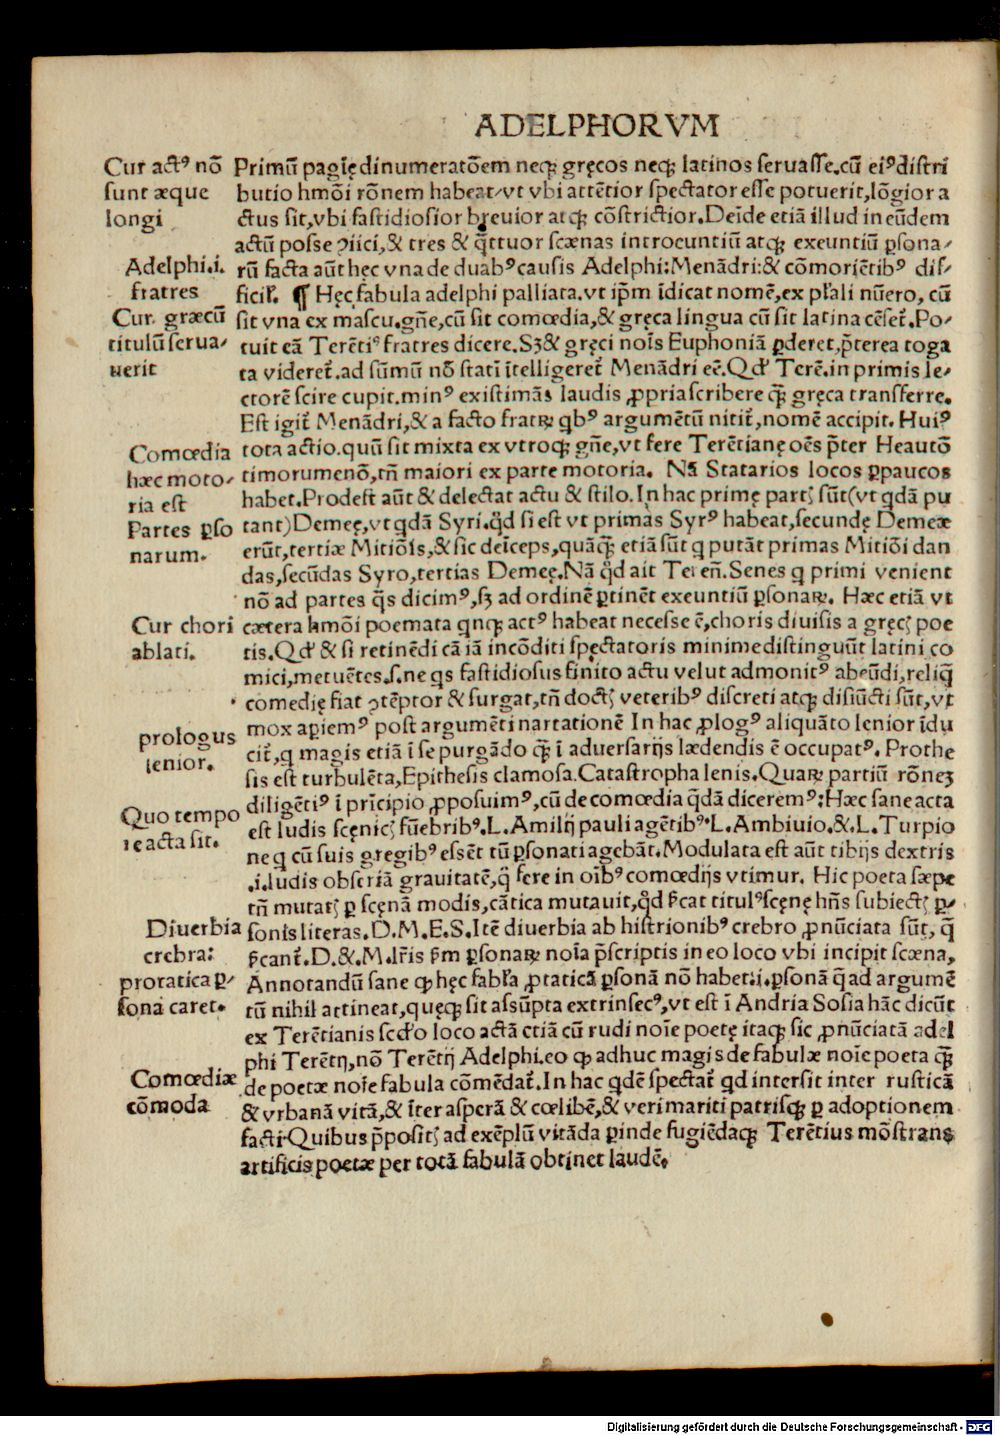 ADELPHORVM
Cur actꝰ nō
sunt æque
longi
Primū pagīę dinumeratōem neqꝫ gręcos neqꝫ latinos seruasse. cū eiꝰ distri
butio hmōi rōnem habeat, vt vbi attētior spectator esse potuerit, lōgior a
ctus sit, vbi fastidiosior breuior atqꝫ cōstrictior. Deīde etiā illud in eūdem
actū posse ꝯiici, & tres & q̄ttuor scænas introeuntiū atqꝫ exeuntiū ꝑsona/
Adelphi.i.
fratres
rū facta aūt hęc vna de duabꝰ causis Adelphi: Menādri: & cōmoriētibꝰ dif/
ficił. ¶ Hęc fabula adelphi palliata. vt ip̄m īdicat nomē, ex pl̄ali nūero, cū
Cur græcū
titulū serua/
uerit
sit vna ex mascu. gn̄e, cū sit comœdia, & gręca lingua cū sit latina cēset̄. Po/
tuit eā Terētiꝰ fratres dicere. Sꝫ & gręci noīs Euphoniā ꝑderet, p̄terea toga
ta videret̄. ad sūmū nō statī ītelligeret̄ Menādri eē. Qđ Terē. in primis le/
ctorē scire cupit. minꝰ existimās laudis ꝓpria scribere q̄ꝫ gręca transferre.
Est igit̄ Menādri, & a facto fratꝝ qbꝰ argumētū nitit̄, nomē accipit. Huiꝰ
Comœdia
hæc moto/
ria est
tota actio. quū sit mixta ex vtroqꝫ gn̄e, vt fere Terētianę oēs p̄ter Heautō
timorumenō, tn̄ maiori ex parte motoria. Nā Statarios locos ꝑpaucos
habet. Prodest aūt & delectat actu & stilo. In hac primę partꝭ sūt (vt qdā pu
Partes ꝑso
narum.
tant) Demeę, vt qdā Syri. q̄d si est vt primas Syrꝰ habeat, secundę Demeæ
erūt, tertiæ Mitiōis, & sic deīceps, quāqꝫ etiā sūt q putāt primas Mitiōi dan
das, secūdas Syro, tertias Demeę. Nā q̄d ait Teren̄. Senes q primi venient
nō ad partes q̄s dicimꝰ, sꝫ ad ordinē ꝑtinēt exeuntiū ꝑsonaꝝ. Hæc etiā vt
Cur chori
ablati.
cætera hmōi poemata qnqꝫ actꝰ habeat necesse ē, choris diuisis a gręcꝭ poe
tis. Qđ & si retinēdi cā iā incōditi spęctatoris minime distinguūt latini co
mici, metuētes .s. ne qs fastidiosus finito actu velut admonitꝰ abeūdi, reliq̄
comedię fiat ꝯtēptor & surgat, tn̄ doctꝭ veteribꝰ discreti atqꝫ disiūcti sūt, vt
mox aꝑiemꝰ post argumēti narrationē In hac ꝓlogꝰ aliquāto lenior īdu
prologus
lenior.
cit̄, q magis etiā ī se purgādo q̄ꝫ ī aduersarijs lædendis ē occupatꝰ. Prothe
sis est turbulēta, Epithesis clamosa. Catastropha lenis. Quaꝝ partiū rōneꝫ
Quo tempo
re acta sit.
diligētiꝰ ī prīcipio ꝓposuimꝰ, cū de comœdia q̄dā diceremꝰ: Hæc sane acta
est ludis scęnicꝭ fūebribꝰ. L. Amilij pauli agētibꝰ. L. Ambiuio. &. L. Turpio
ne q cū suis gregibꝰ essēt tū ꝑsonati agebāt. Modulata est aūt tibijs dextris
.i. ludis obseriā grauitatē, q̄ fere in oībꝰ comœdijs vtimur. Hic poeta sæpe
tn̄ mutatꝭ ꝑ scęnā modis, cātica mutauit, q̄d s̄cat titulꝰ scęnę hn̄s subiectꝭ ꝑ/
Diuerbia
crebra:
sonis literas. D. M. E. S. Itē diuerbia ab histrionibꝰ crebro ꝓnūciata sūt, q̄
s̄cant̄. D. & . M. lr̄is s̄m ꝑsonaꝝ noīa p̄scriptis in eo loco vbi incipit scæna,
protatica ꝑ/
sona caret.
Annotandū sane qꝫ hęc fabl̄a ꝓtaticā ꝑsonā nō habet .i. ꝑsonā q̄ ad argumē
tū nihil attineat, quęqꝫ sit assūpta extrinsecꝰ, vt est ī Andria Sosia hāc dicūt
ex Terētianis scđo loco actā etiā cū rudi noīe poetę itaqꝫ sic ꝓnūciatā adel
phi Terētij, nō Terētij Adelphi. eo qꝫ adhuc magis de fabulæ noīe poeta q̄ꝫ
Comœdiæ
cōmoda
de poetæ noīe fabula cōmēdat̄. In hac qdē spectat̄ qd intersit inter rusticā
& vrbanā vitā, & īter asperā & cœlibē, & veri mariti patrisqꝫ ꝑ adoptionem
facti. Quibus p̄positꝭ ad exēplū vitāda ꝑinde fugiēdaqꝫ Terētius mōstrans
artificis poetæ per totā fabulā obtinet laudē.
Digitalisierung gefördert durch die Deutsche Forschungsgemeinschaft - DFG